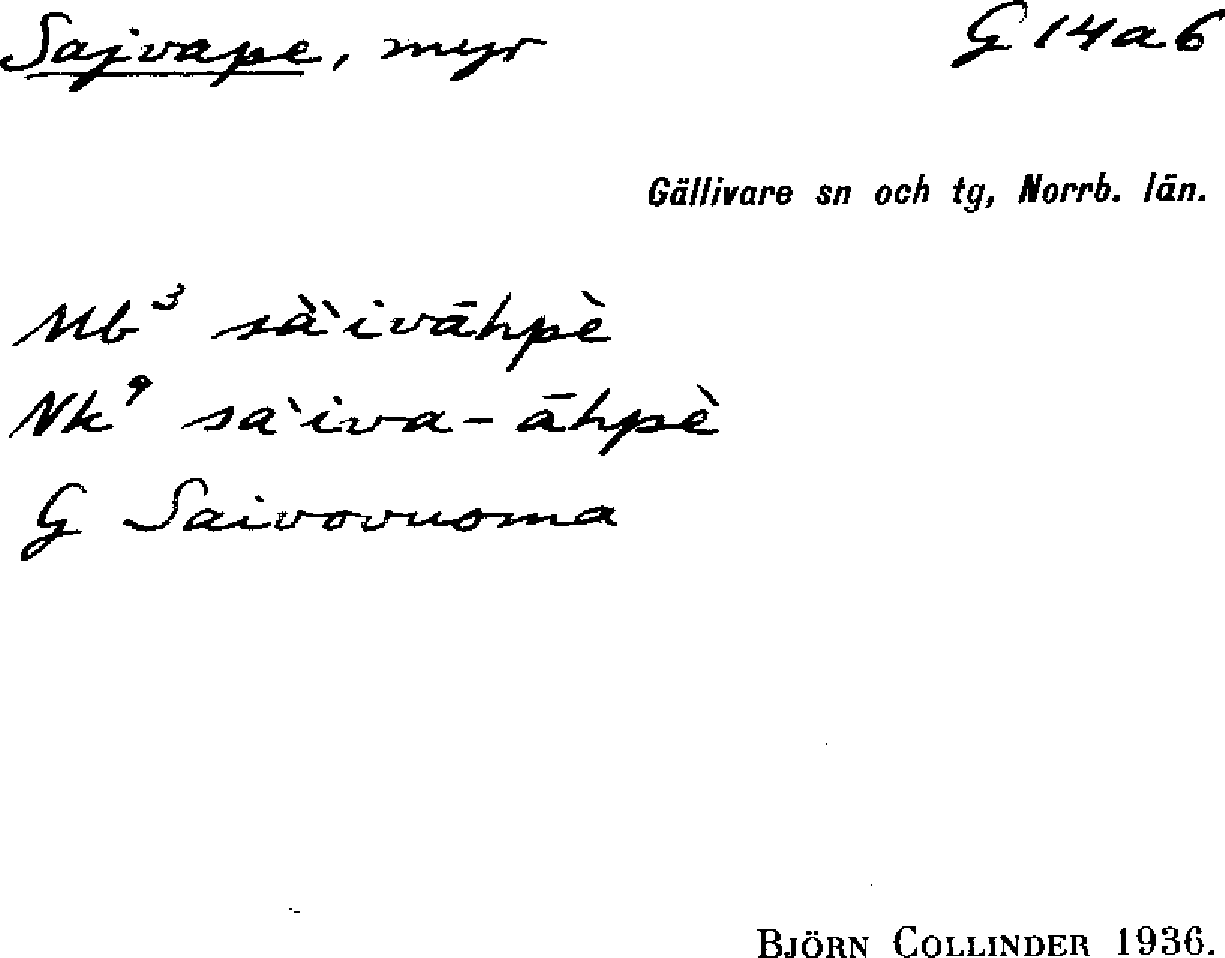 Sajvape, myr G 14a6
Gällivare sn och tg, Norrb. län.
Mb³ sà`ivāhpè
Nk⁹ sa`iva-āhpè
G Saivovuoma
BJÖRN COLLINDER 1936.